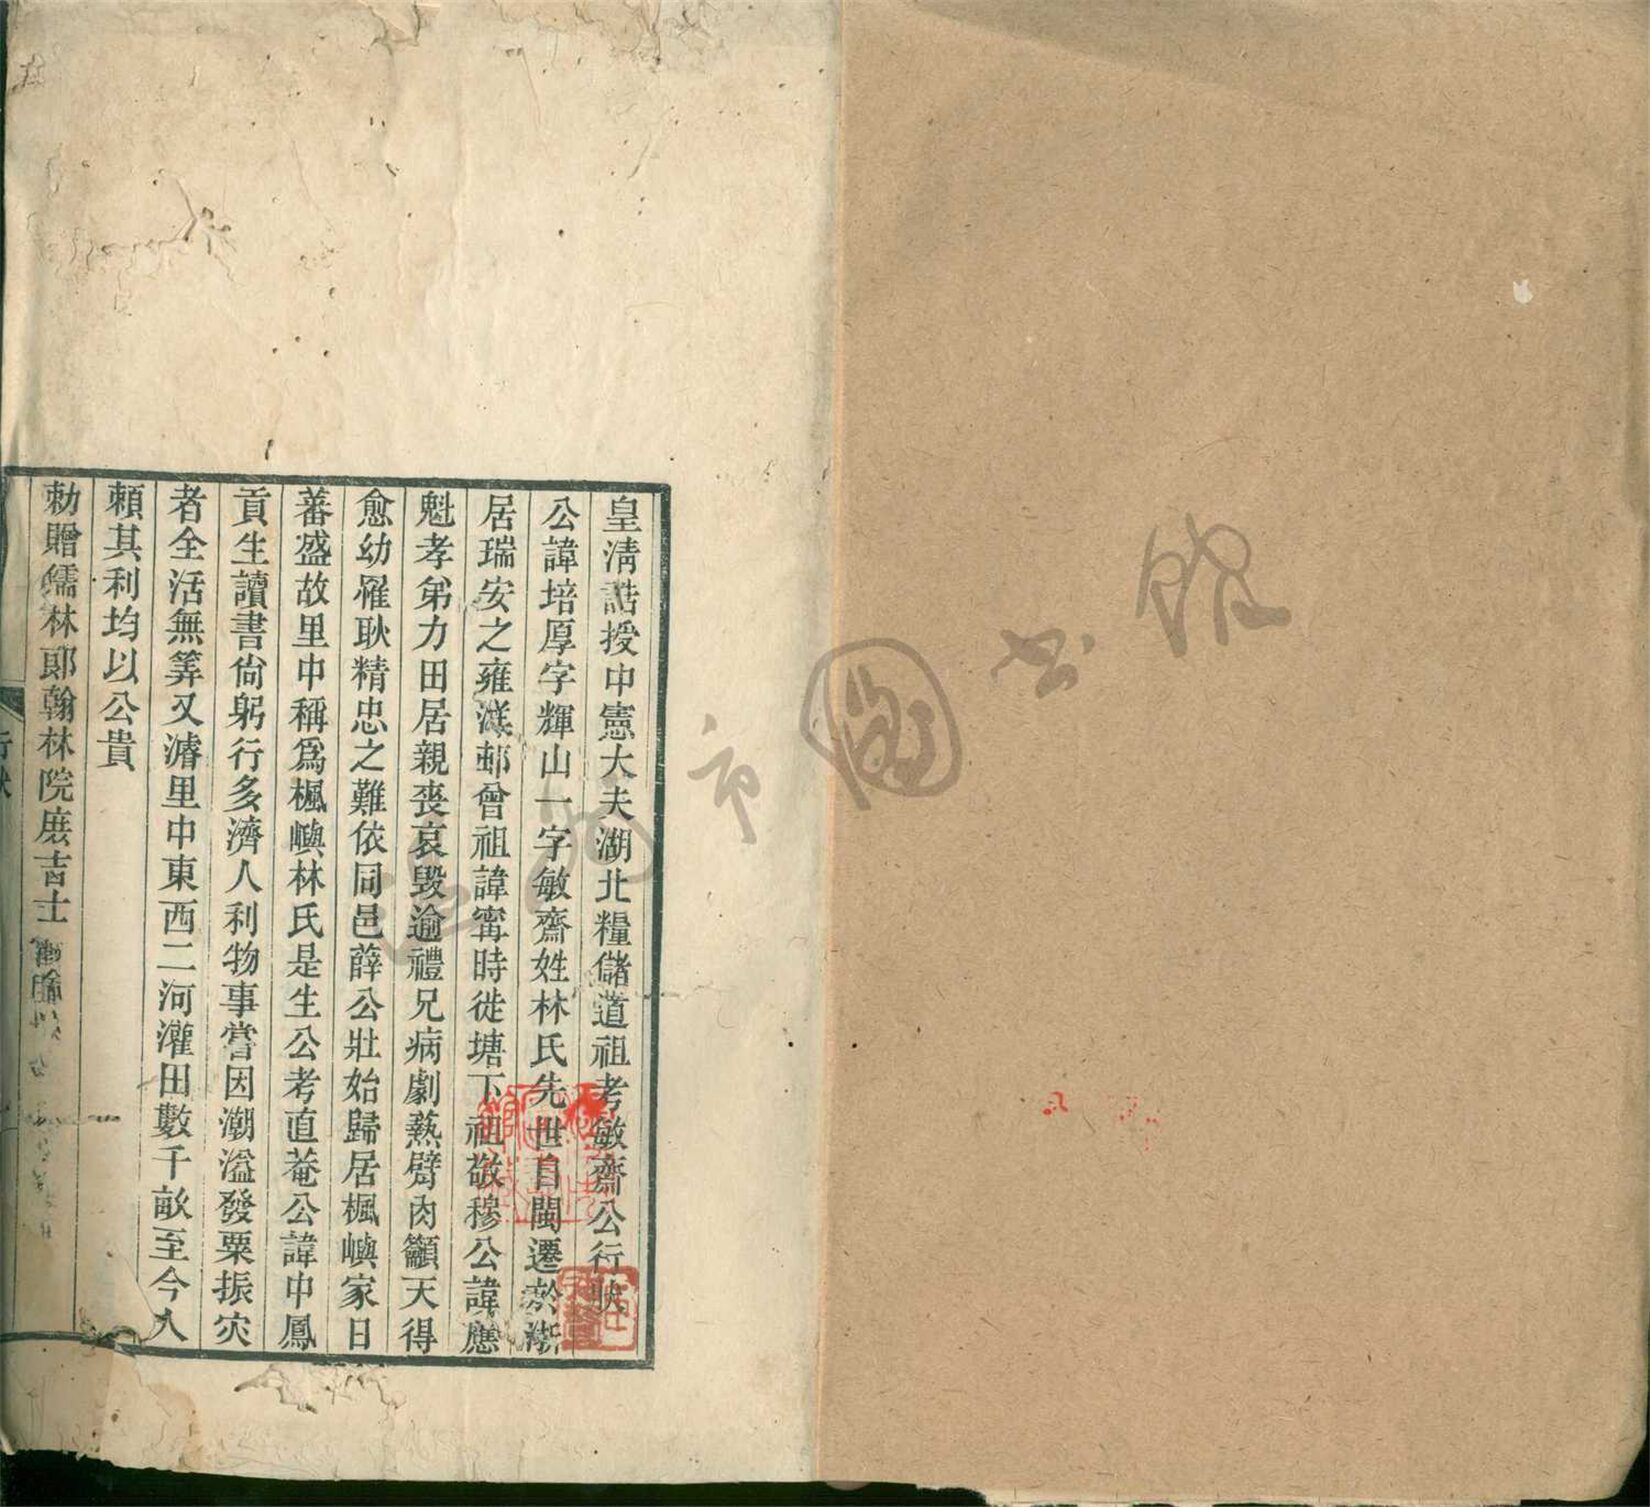 皇淸誥授中憲大夫湖北糧儲道祖考敏齋公行狀
公諱培厚字輝山一字敏齋姓林氏先世自閩遷於浙
居瑞安之雍漾邨曾祖諱寗時徙塘下祖敬穆公諱應
魁孝弟力田居親喪哀毀逾禮兄病劇爇臂肉籲天得
愈幼罹耿精忠之難依同邑薛公壯始歸居楓嶼家日
蕃盛故里中稱爲楓嶼林氏是生公考直菴公諱中鳳
貢生讀書尙躬行多濟人利物事嘗因潮溢發粟振灾
者全活無筭又濬里中東西二河灌田數千畝至今人
賴其利均以公貴
勅贈儒林郞翰林院庶吉士
市圖书馆